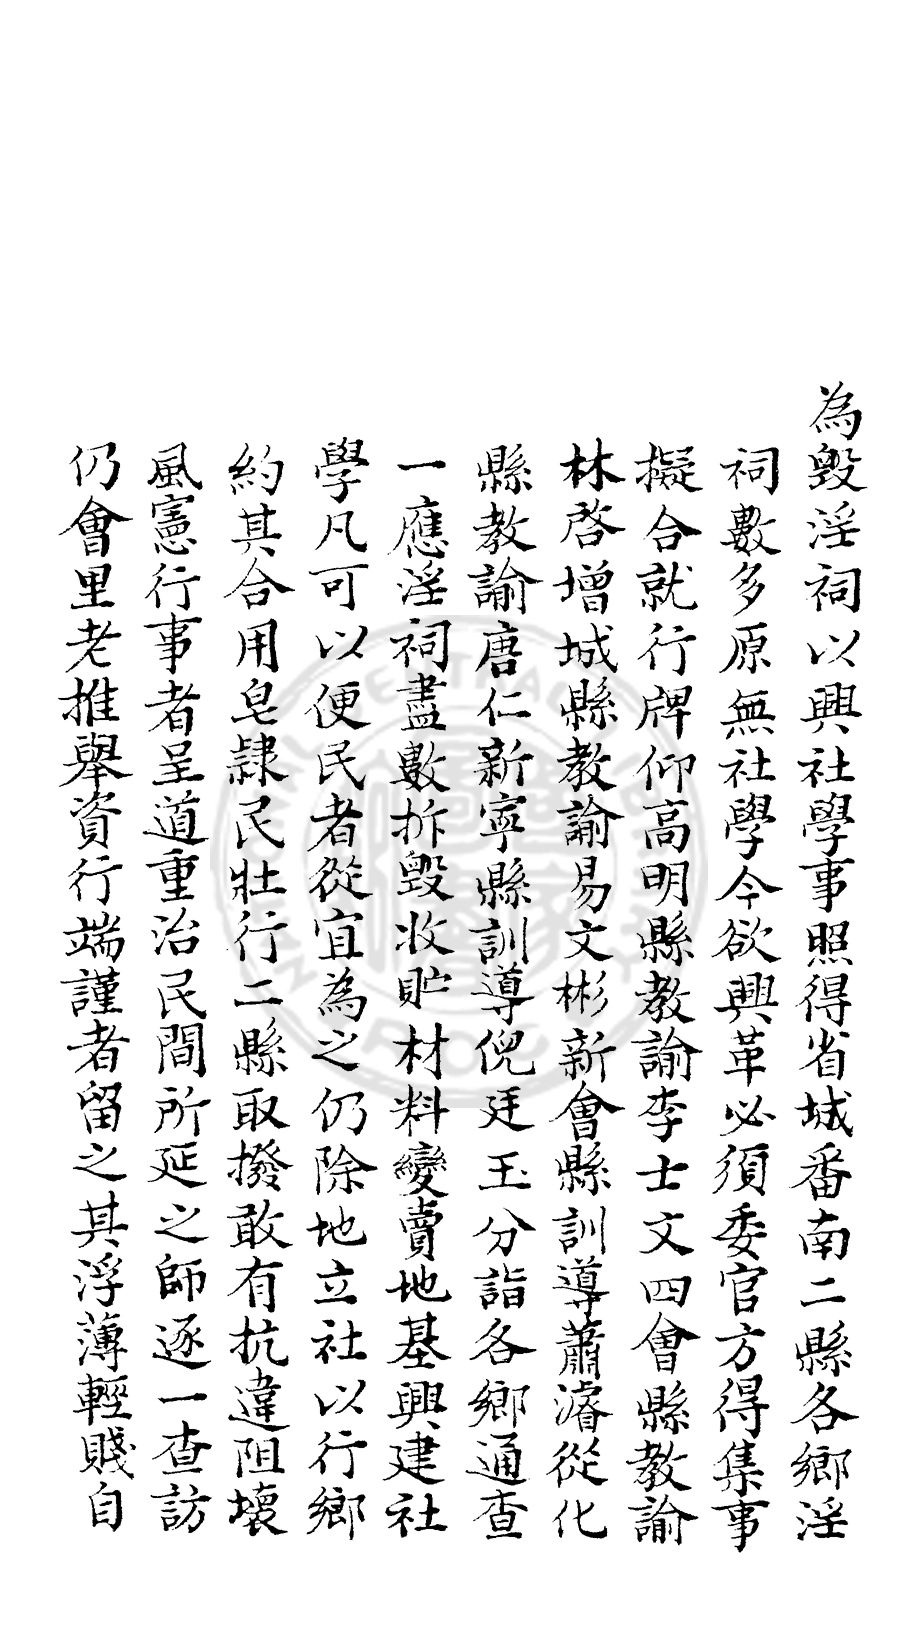 為毀淫祠以興社學事照得省城番南二縣各鄉淫
祠數多原無社學今欲興革必須委官方得集事
擬合就行牌仰高明縣教諭李士文四會縣教諭
林啓增城縣教諭易文彬新會縣訓導蕭濬從化
縣教諭唐仁新寧縣訓導倪廷玉分詣各鄉通查
一應淫祠盡數拆毀收貯材料變賣地基興建社
學凡可以便民者從宜為之仍除地立社以行鄉
約其合用皂隸民壯行二縣取撥敢有抗違阻壞
風憲行事者呈道重治民間所延之師逐一查訪
仍會里老推舉資行端謹者留之其浮薄輕賤自